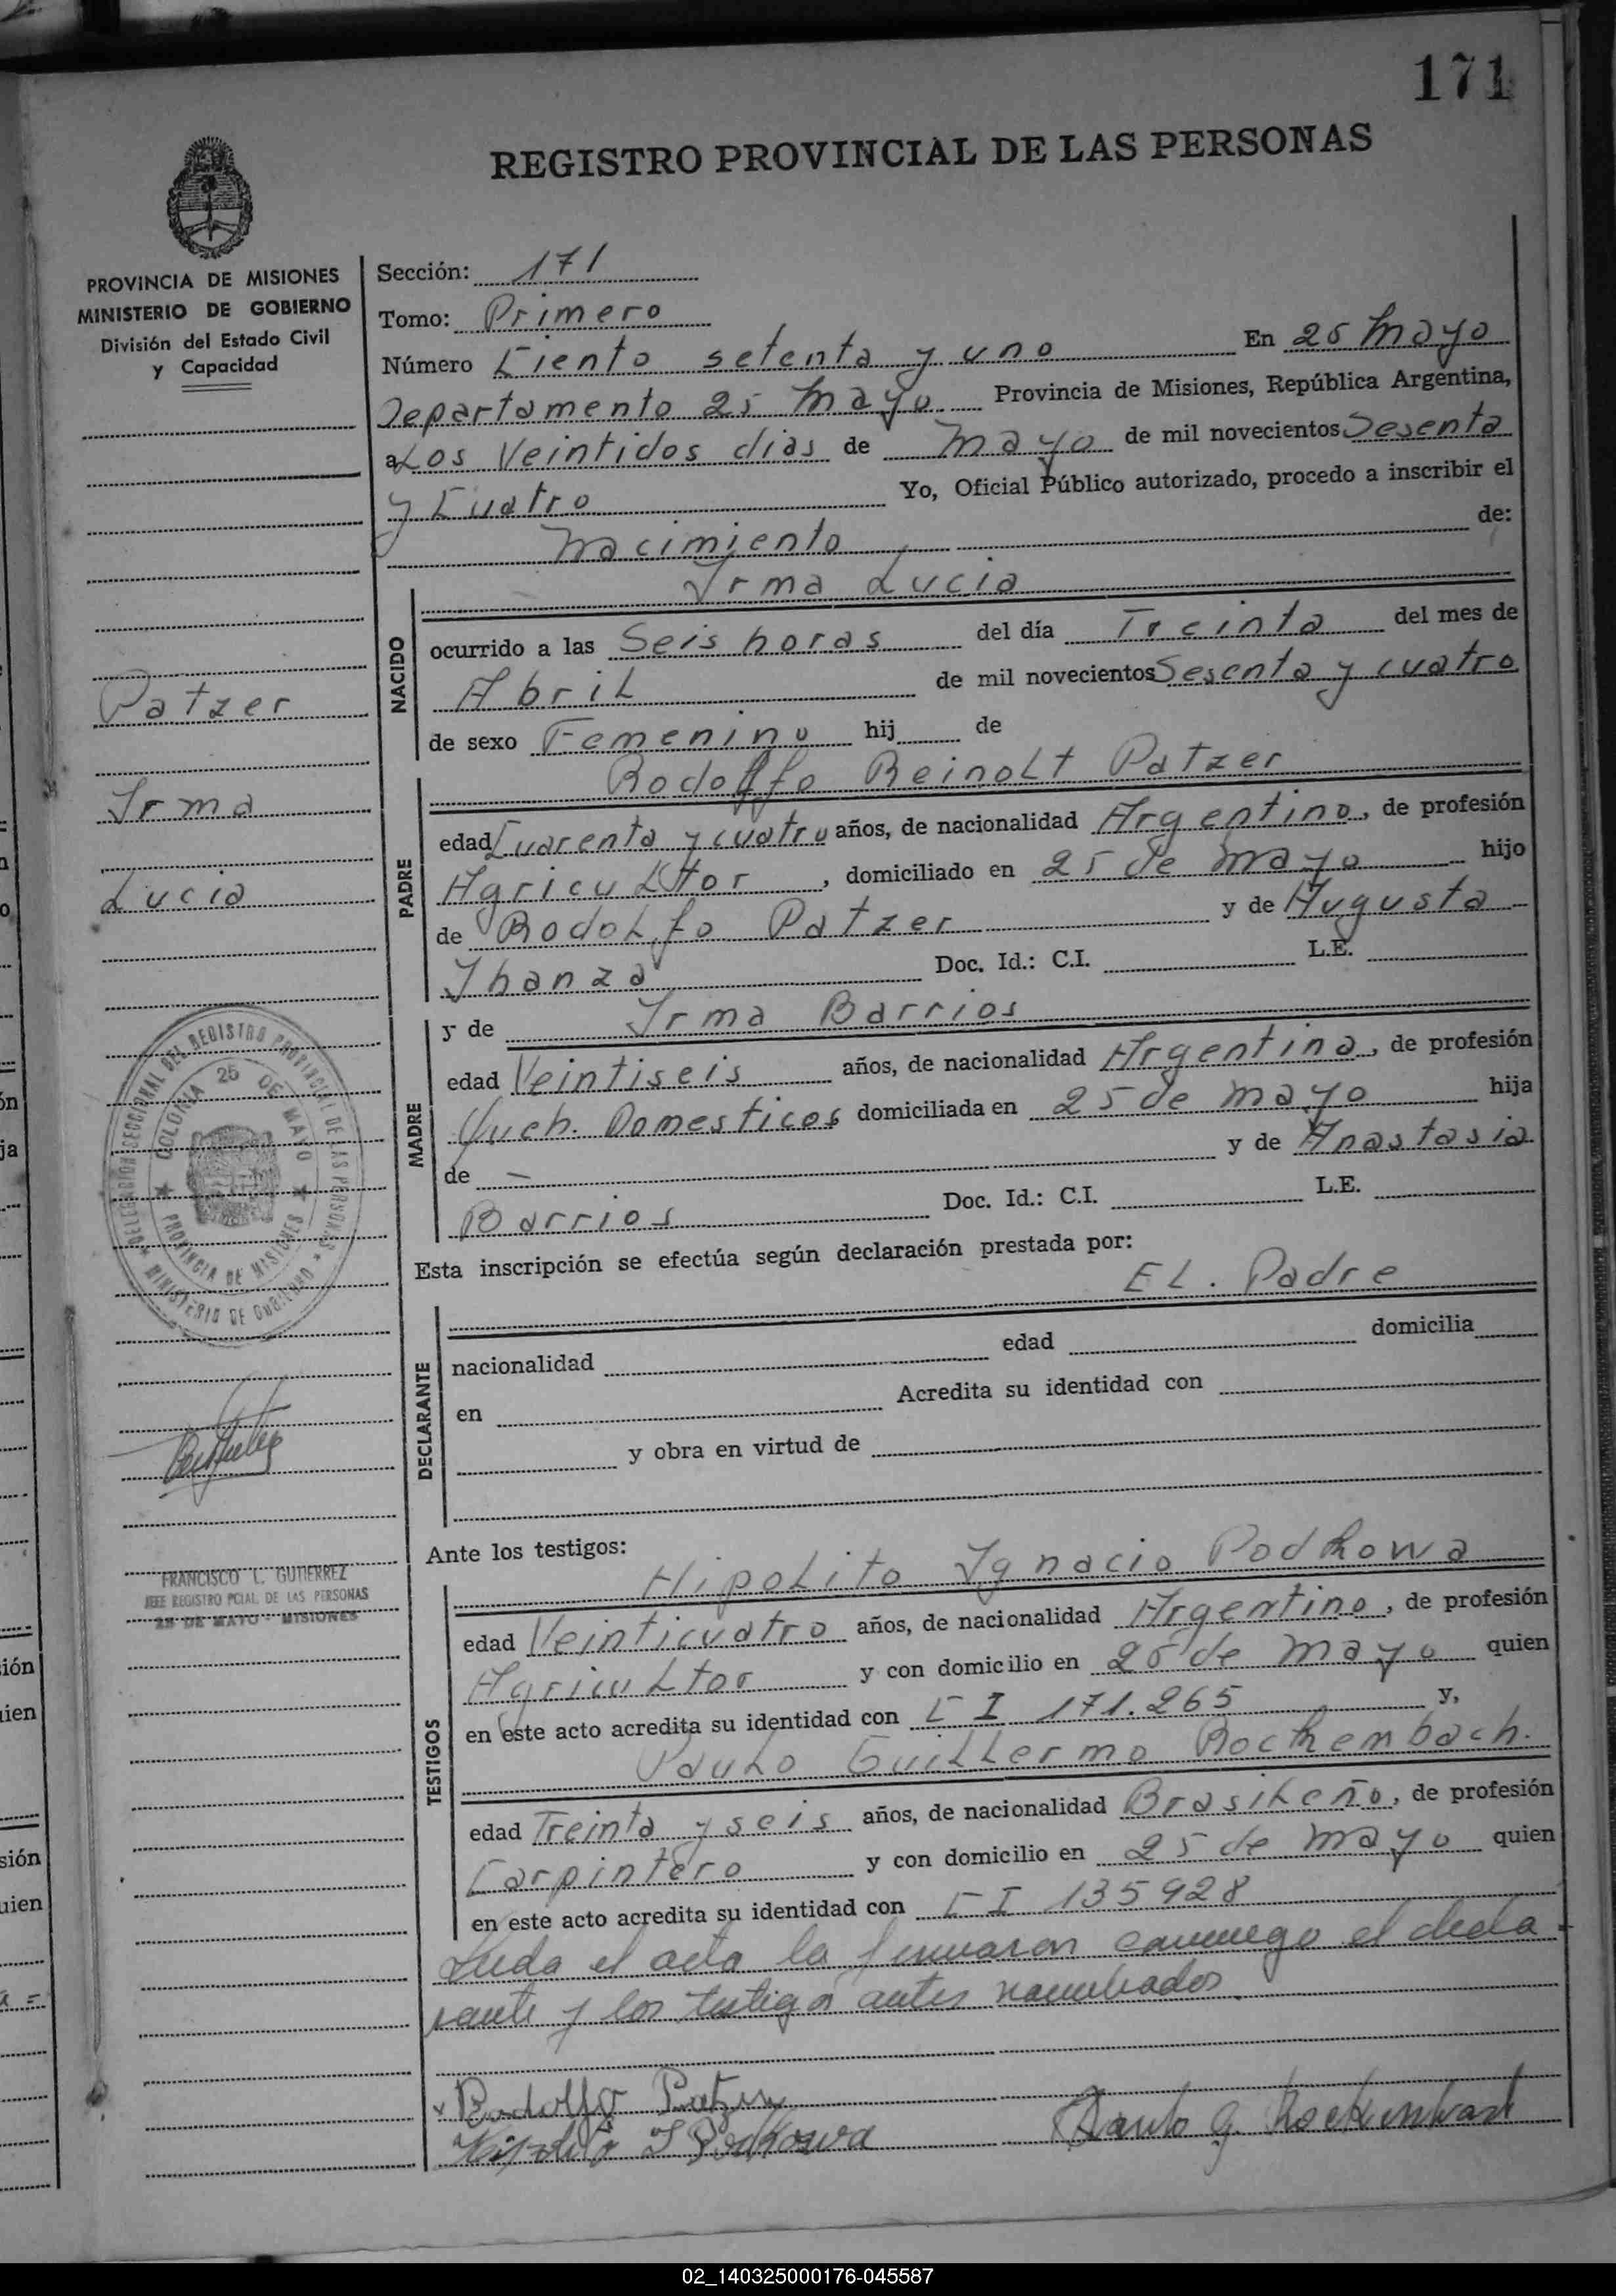 171
REGISTRO PROVINCIAL DE LAS PERSONAS
PROVINCIA DE MISIONES
MINISTERIO DE GOBIERNO
División del Estado Civil
y Capacidad
Patzer
Irma
Lucia
DELEGACION SECCIONAL DEL REGISTRO PROVINCIAL DE LAS PERSONAS
MINISTERIO DE GOBIERNO
COLONIA 25 DE MAYO
PROVINCIA DE MISIONES
FRANCISCO L. GUTIERREZ
JEFE REGISTRO PCIAL. DE LAS PERSONAS
25 DE MAYO - MISIONES
Sección: 171
Tomo: Primero
Número Ciento setenta y uno En 25 Mayo
Departamento 25 Mayo Provincia de Misiones, República Argentina,
a Los Veintidos dias de Mayo de mil novecientos Sesenta
y Cuatro Yo, Oficial Público autorizado, procedo a inscribir el
Nacimiento de:
Irma Lucia
NACIDO
ocurrido a las Seis horas del día Treinta del mes de
Abril de mil novecientos Sesenta y cuatro
de sexo Femenino hij de
Rodolfo Reinolt Patzer
PADRE
edad Cuarenta y cuatro años, de nacionalidad Argentino, de profesión
Agricultor, domiciliado en 25 de Mayo hijo
de Rodolfo Patzer y de Augusta
Ihanza Doc. Id.: C.I. L.E.
MADRE
y de Irma Barrios
edad Veintiseis años, de nacionalidad Argentina, de profesión
Queh. Domesticos domiciliada en 25 de Mayo hija
de — y de Anastasia
Barrios Doc. Id.: C.I. L.E.
Esta inscripción se efectúa según declaración prestada por:
EL. Padre
DECLARANTE
nacionalidad edad domicilia
en Acredita su identidad con
y obra en virtud de
Ante los testigos:
Hipolito Ygnacio Podkowa
TESTIGOS
edad Veinticuatro años, de nacionalidad Argentino, de profesión
Agricultor y con domicilio en 25 de Mayo quien
en este acto acredita su identidad con C I 171.265 y,
Paulo Guillermo Rockembach.
edad Treinta y seis años, de nacionalidad Brasileño, de profesión
Carpintero y con domicilio en 25 de Mayo quien
en este acto acredita su identidad con C I 135928
Leida el acta la firmaron conmigo el decla
rante y los testigos antes nombrados.
Rodolfo Patzer
Hipolito I Podkowa
Paulo G. Rockembach
02_140325000176-045587